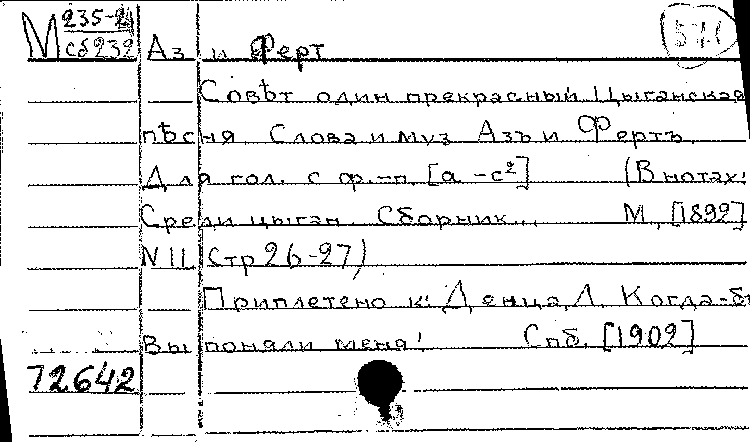 М 235-24
сб232
571
Аз и Ферт
Совѣт один прекрасный. Цыганская
пѣсня. Слова и муз. Азъ и Фертъ.
Для гол. с ф.-п. [a -c²] (В нотах:
Среди цыган. Сборник... М., [1892]
N 11. Стр 26-27)
Приплетено к: Денца, Л. Когда-б
Вы поняли меня! Спб. [1902]
72642